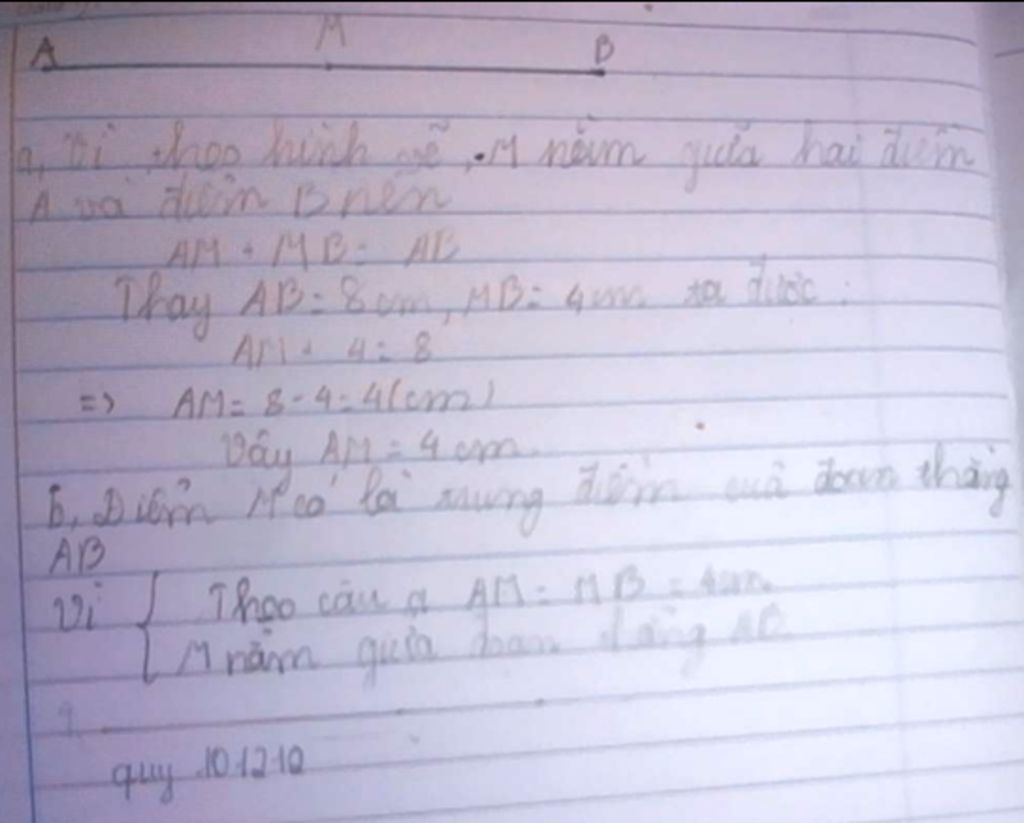 A M B
a, Vì theo hình vẽ, M nằm giữa hai điểm
A và điểm B nên
AM + MB = AB
Thay AB = 8cm, MB = 4cm ta được:
AM + 4 = 8
=> AM = 8 - 4 = 4(cm)
Vậy AM = 4 cm
b, Điểm M có là trung điểm của đoạn thẳng
AB
Vì { Theo câu a AM = MB = 4cm
M nằm giữa đoạn thẳng AB
quy 101210